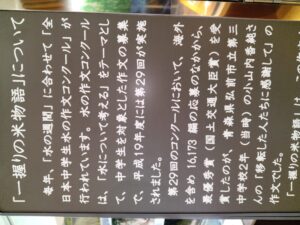 「一握りの米物語」について
毎年、「水の週間」に合わせて「全
日本中学生水の作文コンクール」が
行われています。水の作文コンクール
は、「水について考える」をテーマとし
て、中学生を対象とした作文の募集
で、平成19年度には第29回が実施
されました。
第29回のコンクールにおいて、海外
を含め16,173編の応募のなかから、
最優秀賞(国土交通大臣賞)を受
賞したのが、青森県弘前市立第三
中学校2年(当時)の小山内香純さ
んの「移転した人たちに感謝して」の
作文でした。
「一握りの米物語」